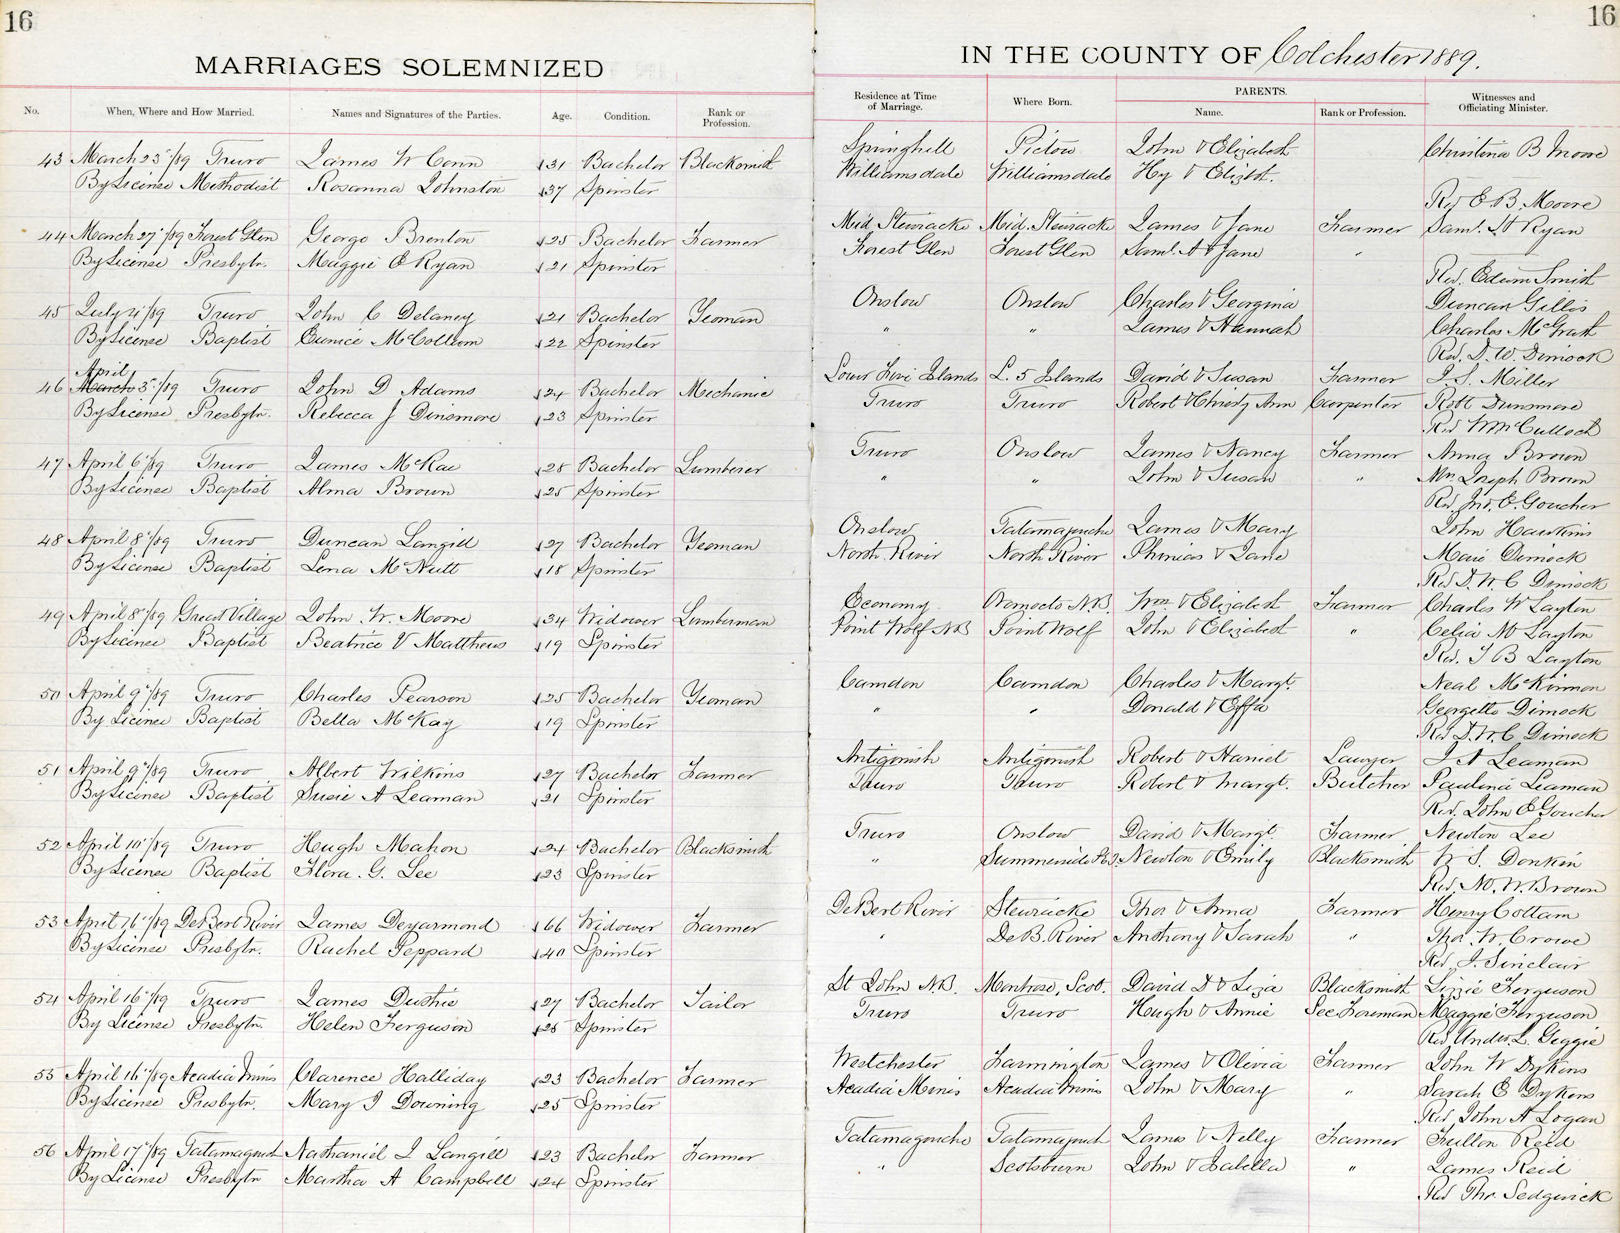 16
MARRIAGES SOLEMNIZED
No. When, Where and How Married. Names and Signatures of the Parties. Age. Condition. Rank or Profession.
43 March 25"/89 Truro James W Conn 31 Bachelor Blacksmith
By License Methodist Rosanna Johnston 37 Spinster
44 March 27"/89 Forest Glen George Brenton 25 Bachelor Farmer
By License Presbytn. Maggie E Ryan 21 Spinster
45 July 4"/89 Truro John C Delaney 21 Bachelor Yeoman
By License Baptist Eunice McCollum 22 Spinster
April
46 March 3"/89 Truro John D Adams 24 Bachelor Mechanic
By License Presbytn. Rebecca J Dinsmore 23 Spinster
47 April 6"/89 Truro James McRae 28 Bachelor Lumberer
By License Baptist Alma Brown 25 Spinster
48 April 8"/89 Truro Duncan Langill 27 Bachelor Yeoman
By License Baptist Lena McNutt 18 Spinster
49 April 8"/89 Great Village John W. Moore 34 Widower Lumberman
By License Baptist Beatrice V Matthews 19 Spinster
50 April 9"/89 Truro Charles Pearson 25 Bachelor Yeoman
By License Baptist Bella McKay 19 Spinster
51 April 9"/89 Truro Albert Wilkins 27 Bachelor Farmer
By License Baptist Susie A Leaman 21 Spinster
52 April 10"/89 Truro Hugh Mahon 24 Bachelor Blacksmith
By License Baptist Flora. G. Lee 23 Spinster
53 April 16"/89 DeBert River James Deyarmond 66 Widower Farmer
By License Presbytn. Rachel Peppard 40 Spinster
54 April 16"/89 Truro James Duthie 27 Bachelor Tailor
By License Presbytn. Helen Ferguson 25 Spinster
55 April 16"/89 Acadia Mines Clarence Halliday 23 Bachelor Farmer
By License Presbytn. Mary J Downing 25 Spinster
56 April 17"/89 Tatamagouch Nathaniel J Langill 23 Bachelor Farmer
By License Presbytn Martha A Campbell 24 Spinster
16
IN THE COUNTY OF Colchester 1889.
Residence at Time of Marriage. Where Born. PARENTS. Name. Rank or Profession. Witnesses and Officiating Minister.
Springhill Pictou John & Elizabeth Christina B Moore
Williamsdale Williamsdale Hy & Elizbt.
Rev E. B. Moore
Mid. Stewiacke Mid. Stewiacke James & Jane Farmer Saml. H Ryan
Forest Glen Forest Glen Saml. A & Jane "
Rev. Edwin Smith
Onslow Onslow Charles & Georgina Duncan Gillis
" " James & Hannah Charles McGrath
Rev. D. W. Dimock
Lower Five Islands L. 5 Islands David & Susan Farmer J. S. Miller
Truro Truro Robert & Christy Ann Carpenter Robt Dunsmore
Rev Wm McCulloch
Truro Onslow James & Nancy Farmer Anna P Brown
" " John & Susan " Mrs Joseph Brown
Rev Jno. E. Goucher
Onslow Tatamagouche James & Mary John Hawkins
North River North River Phineas & Jane Marie Dimock
Rev D. W. C Dimock
Economy Oromocto N.B. Wm. & Elizabeth Farmer Charles W Layton
Point Wolf NB Point Wolf John & Elizabeth " Celia M Layton
Rev. T B Layton
Camden Camden Charles & Margt. Neal McKinnon
" " Donald & Effa Georgetta Dimock
Rev D. W. C Dimock
Antigonish Antigonish Robert & Harriet Lawyer J A Leaman
Truro Truro Robert & Margt. Butcher Paulina Leaman
Rev. John E Goucher
Truro Onslow David & Margt. Farmer Newton Lee
" Summerside Newton & Emily Blacksmith W S. Donkin
Rev. M. W. Brown
DeBert River Stewiacke Thos & Anna Farmer Henry Cottam
" De B. River Anthony & Sarah " Thos. W. Crowe
Rev. J. Sinclair
St John NB. Montrose, Scot. David D & Liza Blacksmith Lizzie Ferguson
Truro Truro Hugh & Annie Sec Foreman Maggie Ferguson
Rev Andw. L. Geggie
Westchester Farmington James & Olivia Farmer John W Dykens
Acadia Mines Acadia Mines John & Mary " Sarah E Dykens
Rev John A Logan
Tatamagouche Tatamagouch James & Nelly Farmer Fullton Reid
" Scotsburn John & Isabella " James Reid
Rev Thos. Sedgwick